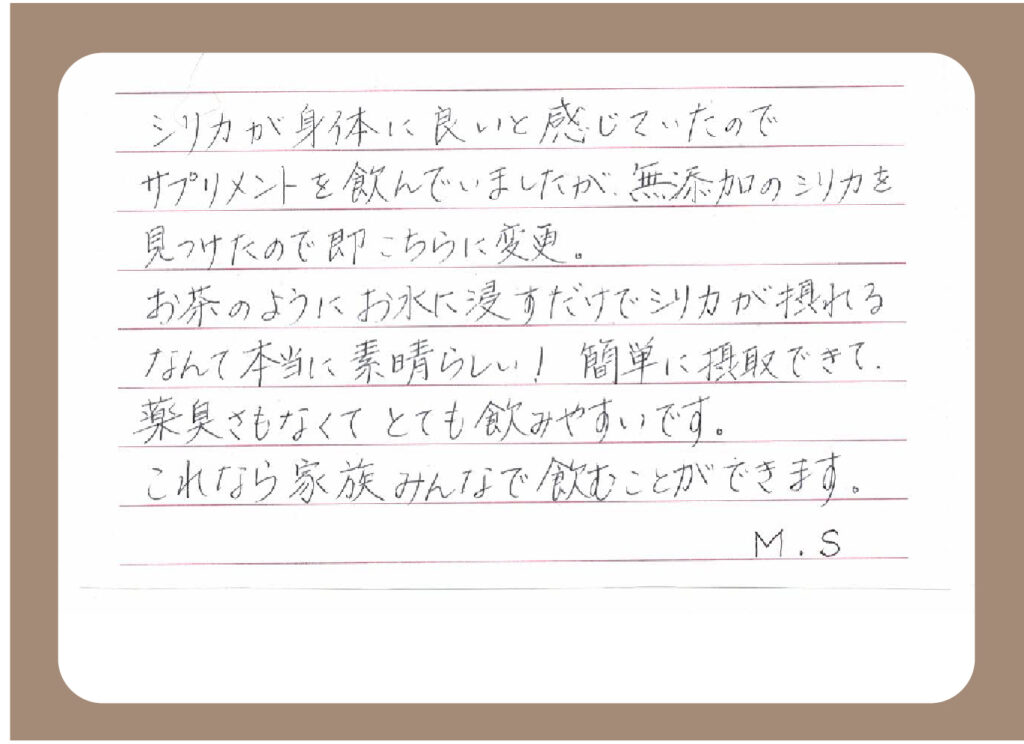 シリカが身体に良いと感じていたので
サプリメントを飲んでいましたが、無添加のシリカを
見つけたので即こちらに変更。
お茶のようにお水に浸すだけでシリカが摂れる
なんて本当に素晴らしい！ 簡単に摂取できて、
薬臭さもなくてとても飲みやすいです。
これなら家族みんなで飲むことができます。
M.S